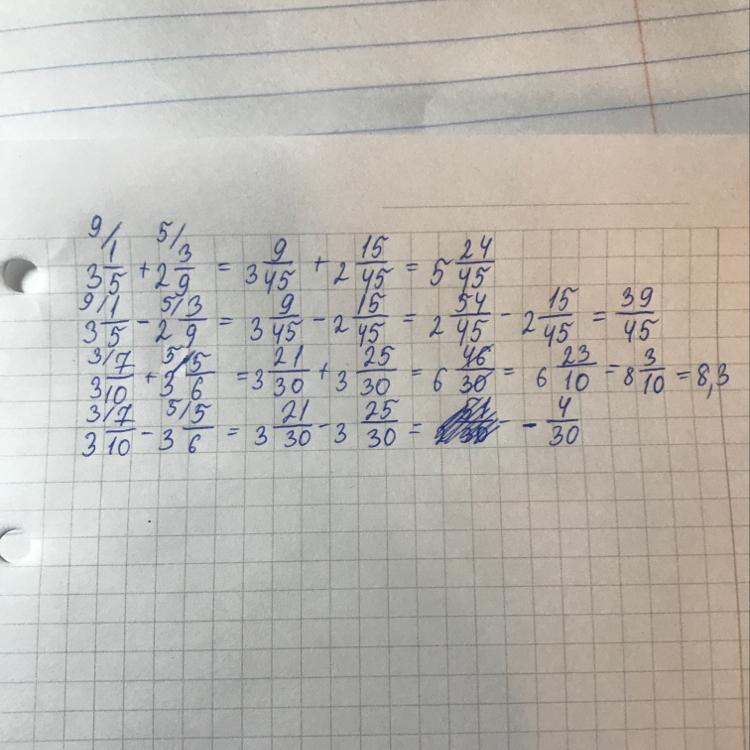 9/ 5/
3 1/5 + 2 3/9 = 3 9/45 + 2 15/45 = 5 24/45
9/ 5/
3 1/5 - 2 3/9 = 3 9/45 - 2 15/45 = 2 54/45 - 2 15/45 = 39/45
3/ 5/
3 7/10 + 3 5/6 = 3 21/30 + 3 25/30 = 6 46/30 = 6 23/10 = 8 3/10 = 8,3
3/ 5/
3 7/10 - 3 5/6 = 3 21/30 - 3 25/30 = - 4/30